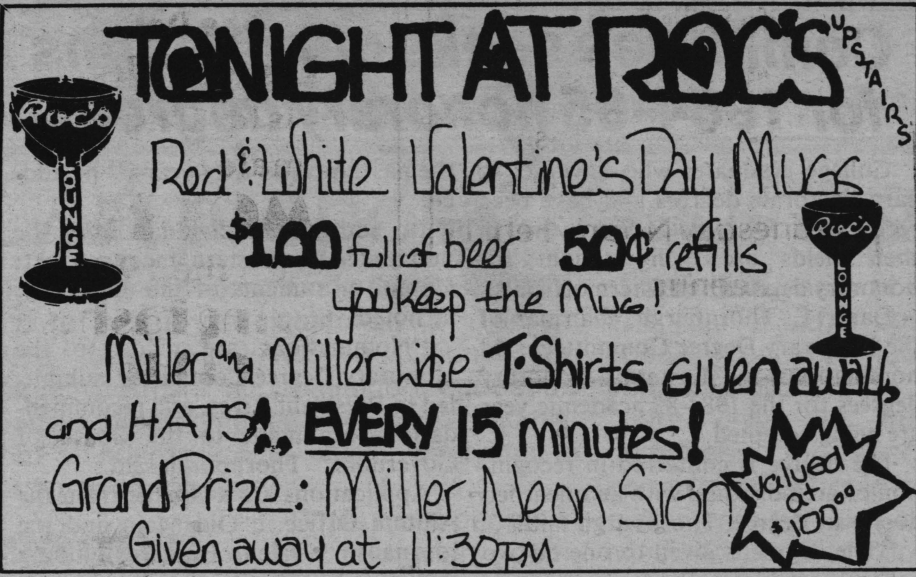 TONIGHT AT ROC'S UPSTAIRS
Roc's
LOUNGE
Red & White Valentine's Day Mugs
$1.00 full of beer 50¢ refills
you keep the Mug!
Roc's
LOUNGE
Miller and Miller Lite T-Shirts given away
and HATS!! EVERY 15 minutes!
Grand Prize: Miller Neon Sign
valued
at
$100.00
Given away at 11:30PM